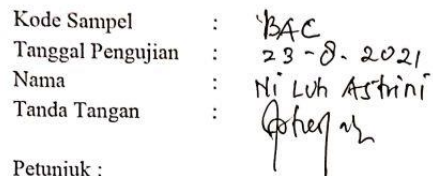 Kode Sampel : BAC
Tanggal Pengujian : 23-8-2021
Nama : Ni Luh Astrini
Tanda Tangan :
Petunjuk :